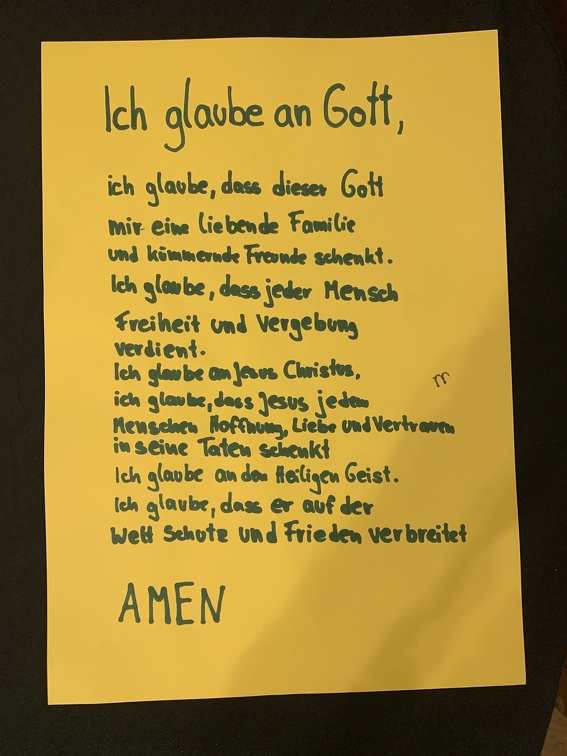 Ich glaube an Gott,
ich glaube, dass dieser Gott
mir eine liebende Familie
und kümmernde Freunde schenkt.
Ich glaube, dass jeder Mensch
Freiheit und Vergebung
verdient.
Ich glaube an Jesus Christus,
m
ich glaube, dass Jesus jedem
Menschen Hoffnung, Liebe und Vertrauen
in seine Taten schenkt
Ich glaube an den Heiligen Geist.
Ich glaube, dass er auf der
Welt Schutz und Frieden verbreitet
AMEN